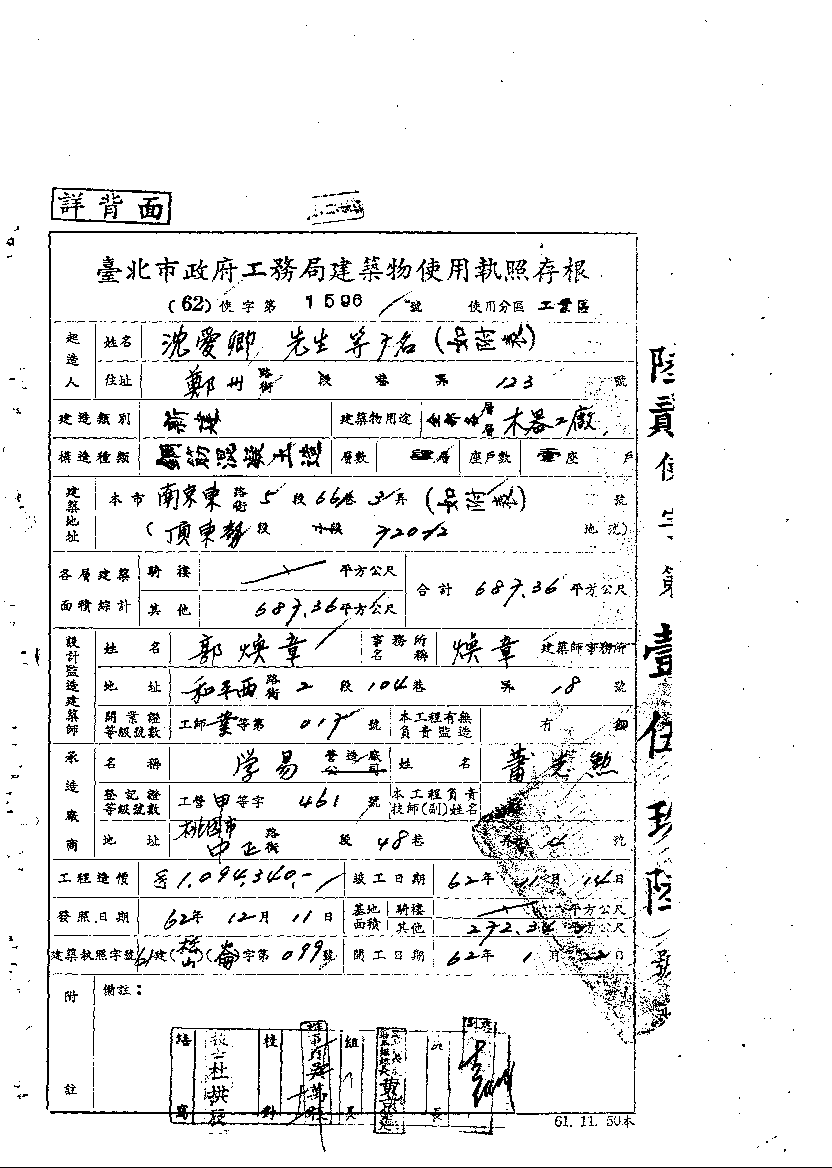 詳背面
臺北市政府工務局建築物使用執照存根
(62)使字第 1596 號 使用分區 工業區
起造人 姓名 沈愛卿 先生等7名(如附表)
住址 鄭州路街 段 巷 弄 123 號
建造類別 新建 建築物用途 層層 木器工廠
構造種類 鋼筋混凝土造 層數 層 座戶數 壹座 戶
建築地址 本市 南京東路街 5段 66巷 3弄 (如附表) 號
(頂東勢段 小段 720-2 地號)
各層建築面積綜計 騎樓 平方公尺 合計 687.36 平方公尺
其他 687.36 平方公尺
設計監造建築師 姓名 郭煥章 事務所名稱 煥章 建築師事務所
地址 和平西路街 2段 104巷 弄 18 號
開業證等級號數 工師 等第 017 號 本工程有無負責監造 有
承造廠商 名稱 學易 營造廠公司 姓名
登記證等級號數 工營甲等字 461 號 本工程負責技師(副)姓名
地址 桃園市中正路街 段 48巷 4 號
工程造價 1,094,340.- 竣工日期 62年 11月 14日
發照日期 62年 12月 11日 基地面積 騎樓 平方公尺
其他 272.34 平方公尺
建築執照字號 61建(松山)(崙)字第 099 號 開工日期 62年 1月 22日
附註 備註：
繕寫 校對 組長
陸貳使字第壹伍玖陸號
61. 11. 50本